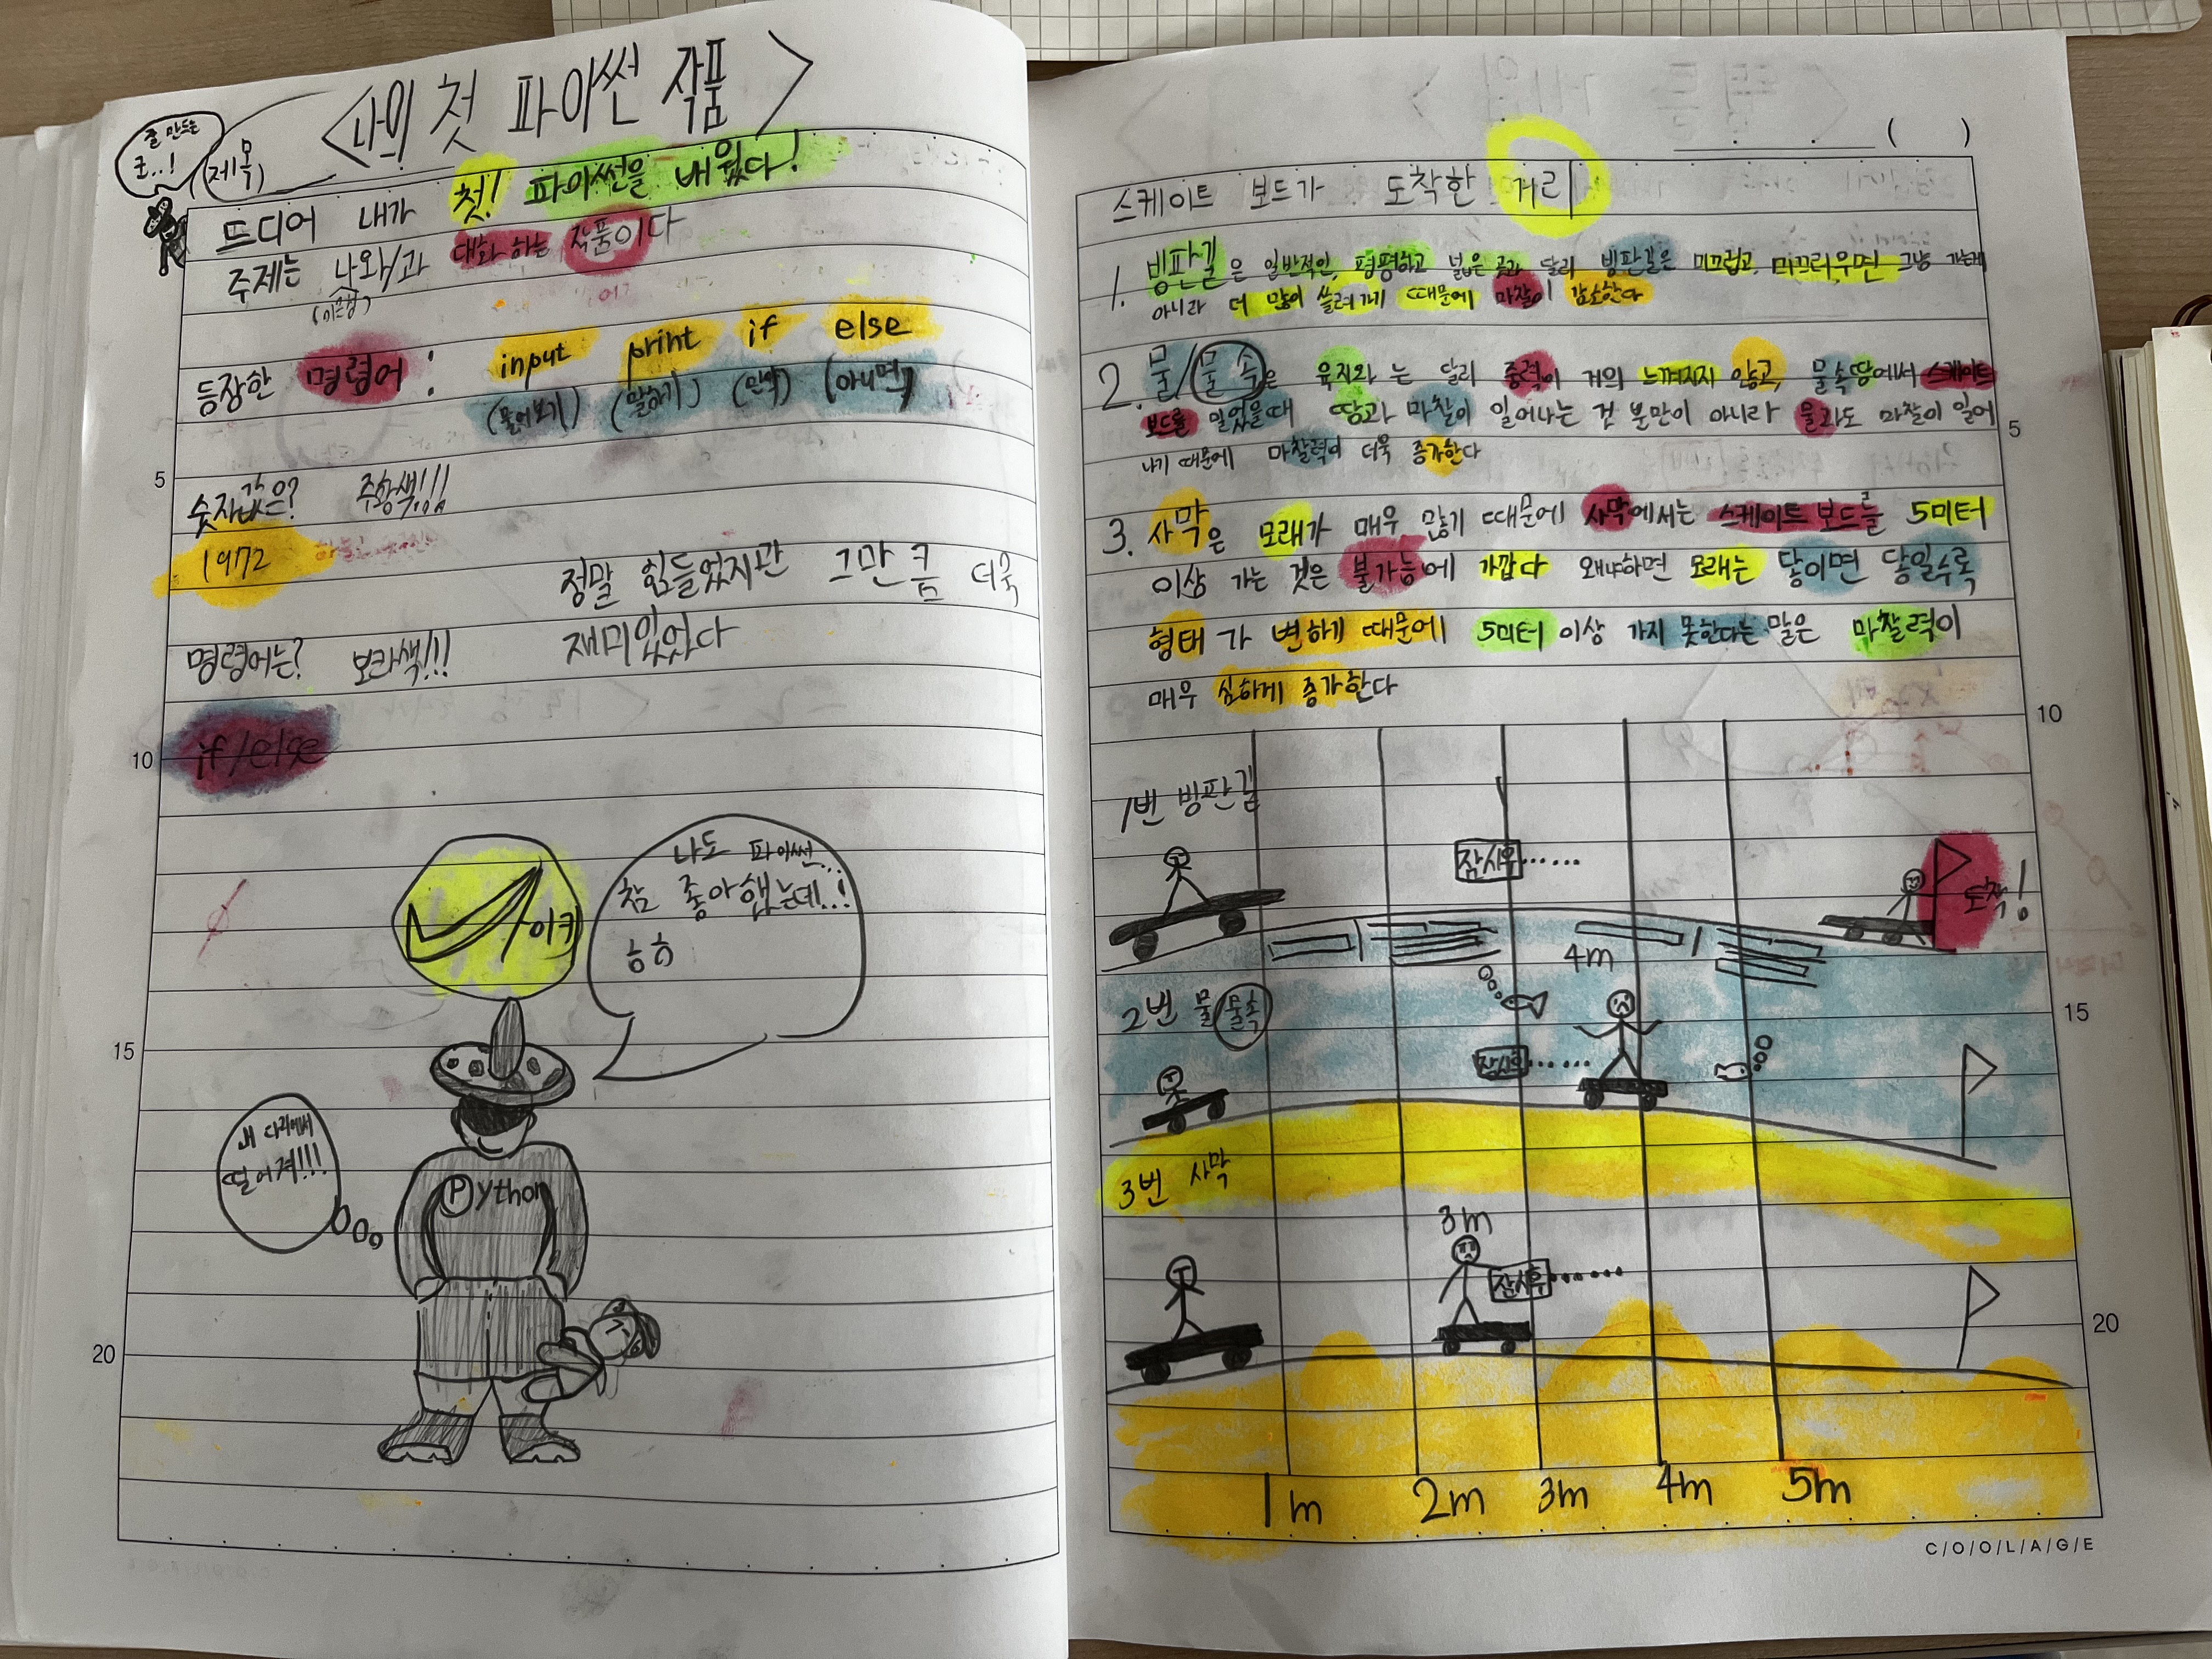 <나의 첫 파이썬 작품>
잘 만드는
군..!
(제목)
드디어 내가 첫! 파이썬을 배웠다!
주제는 나와/과 대화하는 작품이다
등장한 명령어: input print if else
(물어보기) (말하기) (만약) (아니면)
숫자값은? 주황색!!!
1972
정말 힘들었지만 그만큼 더욱
재미있었다
명령어는? 보라색!!!
if/else
나도 파이썬..
참 좋아했는데..!
흠흠
이키
내 다리에서
떨어져!!!
Python
5
10
15
20
( )
스케이트 보드가 도착한 거리
1. 빙판길은 일반적인, 평평하고 넓은 곳과 달리 빙판길은 미끄럽고, 미끄러우면 그냥 가는게
아니라 더 많이 쓸려가기 때문에 마찰이 감소한다
2. 물/물속은 육지와 는 달리 중력이 거의 느껴지지 않고, 물속땅에서 스케이트
보드를 밀었을때 땅과 마찰이 일어나는 것 분만이 아니라 물과도 마찰이 일어
나기 때문에 마찰력이 더욱 증가한다
3. 사막은 모래가 매우 많기 때문에 사막에서는 스케이트 보드를 5미터
이상 가는 것은 불가능에 가깝다 왜냐하면 모래는 닿이면 닿일수록
형태가 변하게 때문에 5미터 이상 가지 못한다는 말은 마찰력이
매우 심하게 증가한다
1번 빙판길
잠시후......
도착!
4m
2번 물/물속
잠시후......
3번 사막
3m
잠시후......
1m 2m 3m 4m 5m
5
10
15
20
C/O/O/L/A/G/E